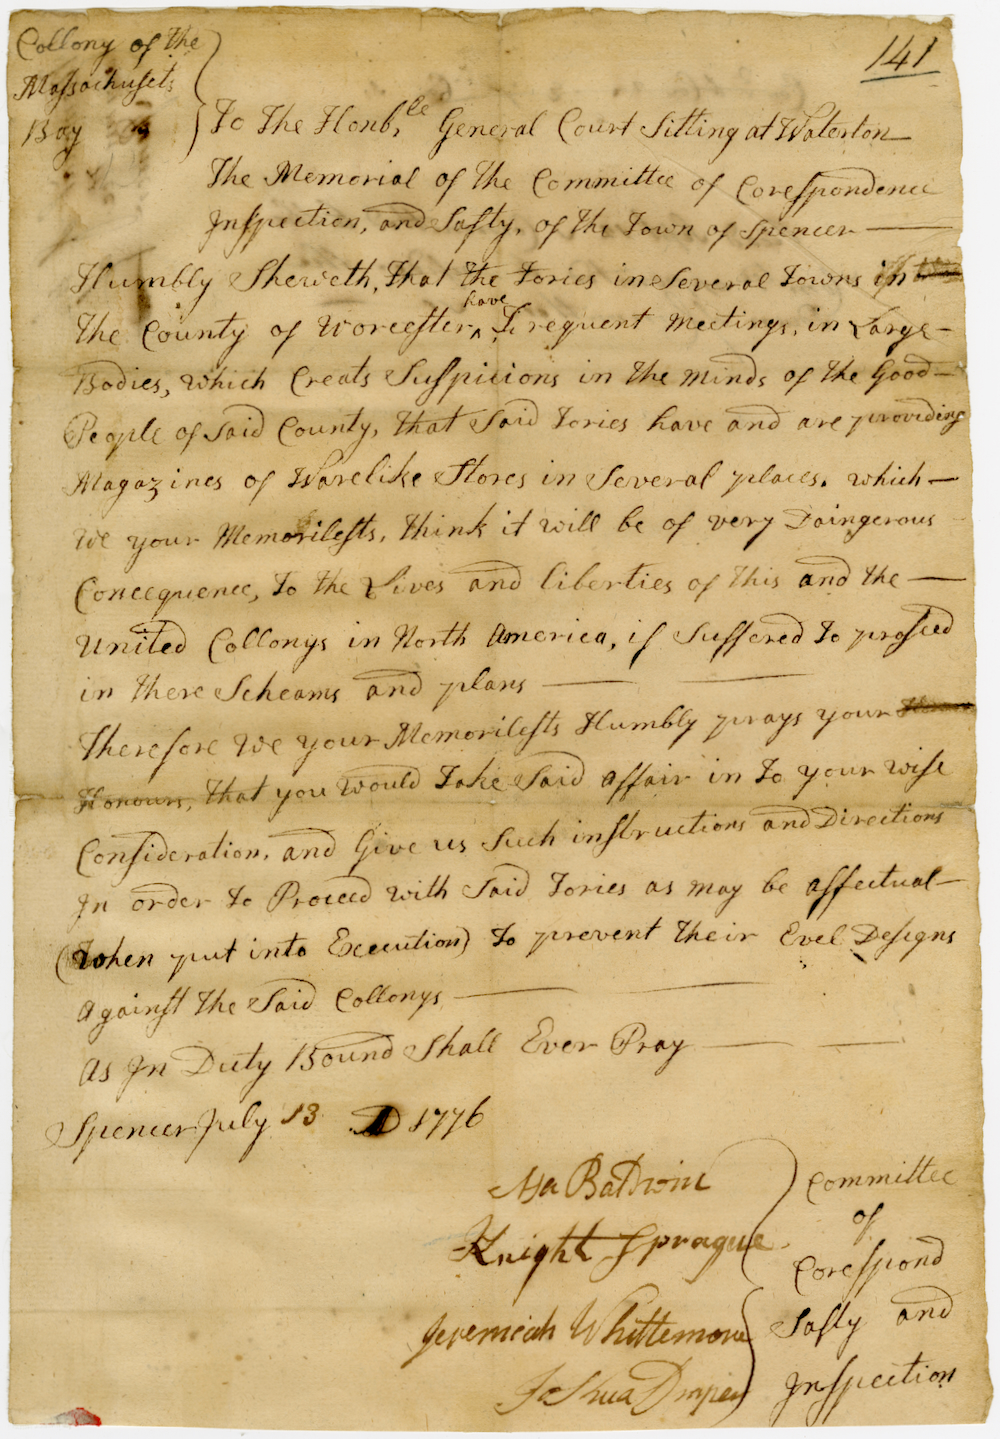 141
Collony of the
Massachusets
Bay
To the Honb,le General Court Sitting at Waterton
The Memorial of the Committee of Corespondence
Inspection, and Safty, of the Town of Spencer
Humbly Sheweth, that the Tories in Several Towns in
the County of Worcester have Frequent meetings, in Large
Bodies, which Creats Suspicions in the minds of the Good
People of Said County, that Said Tories have and are providing
Magazines of Warelike Stores in Several places. which
We your Memorilests, think it will be of very Daingerous
Concequence, to the Lives and liberties of this and the
United Collonys in North America, if Suffered to proseed
in there Scheams and plans
Therefore We your Memorilests Humbly prays your
Honours, that you Would Take Said affair in to your wise
Consideration, and Give us Such instructions and Directions
In order to Proceed with Said Tories as may be affectual
(When put into Execution) to prevent their Evel Designs
against the Said Collonys
As In Duty Bound Shall Ever Pray
Spencer July 13 AD 1776
Asa Baldwin
Knight Sprague
Jeremiah Whittemore
Joshua Draper
Committee
of
Corespond
Safty and
Inspection